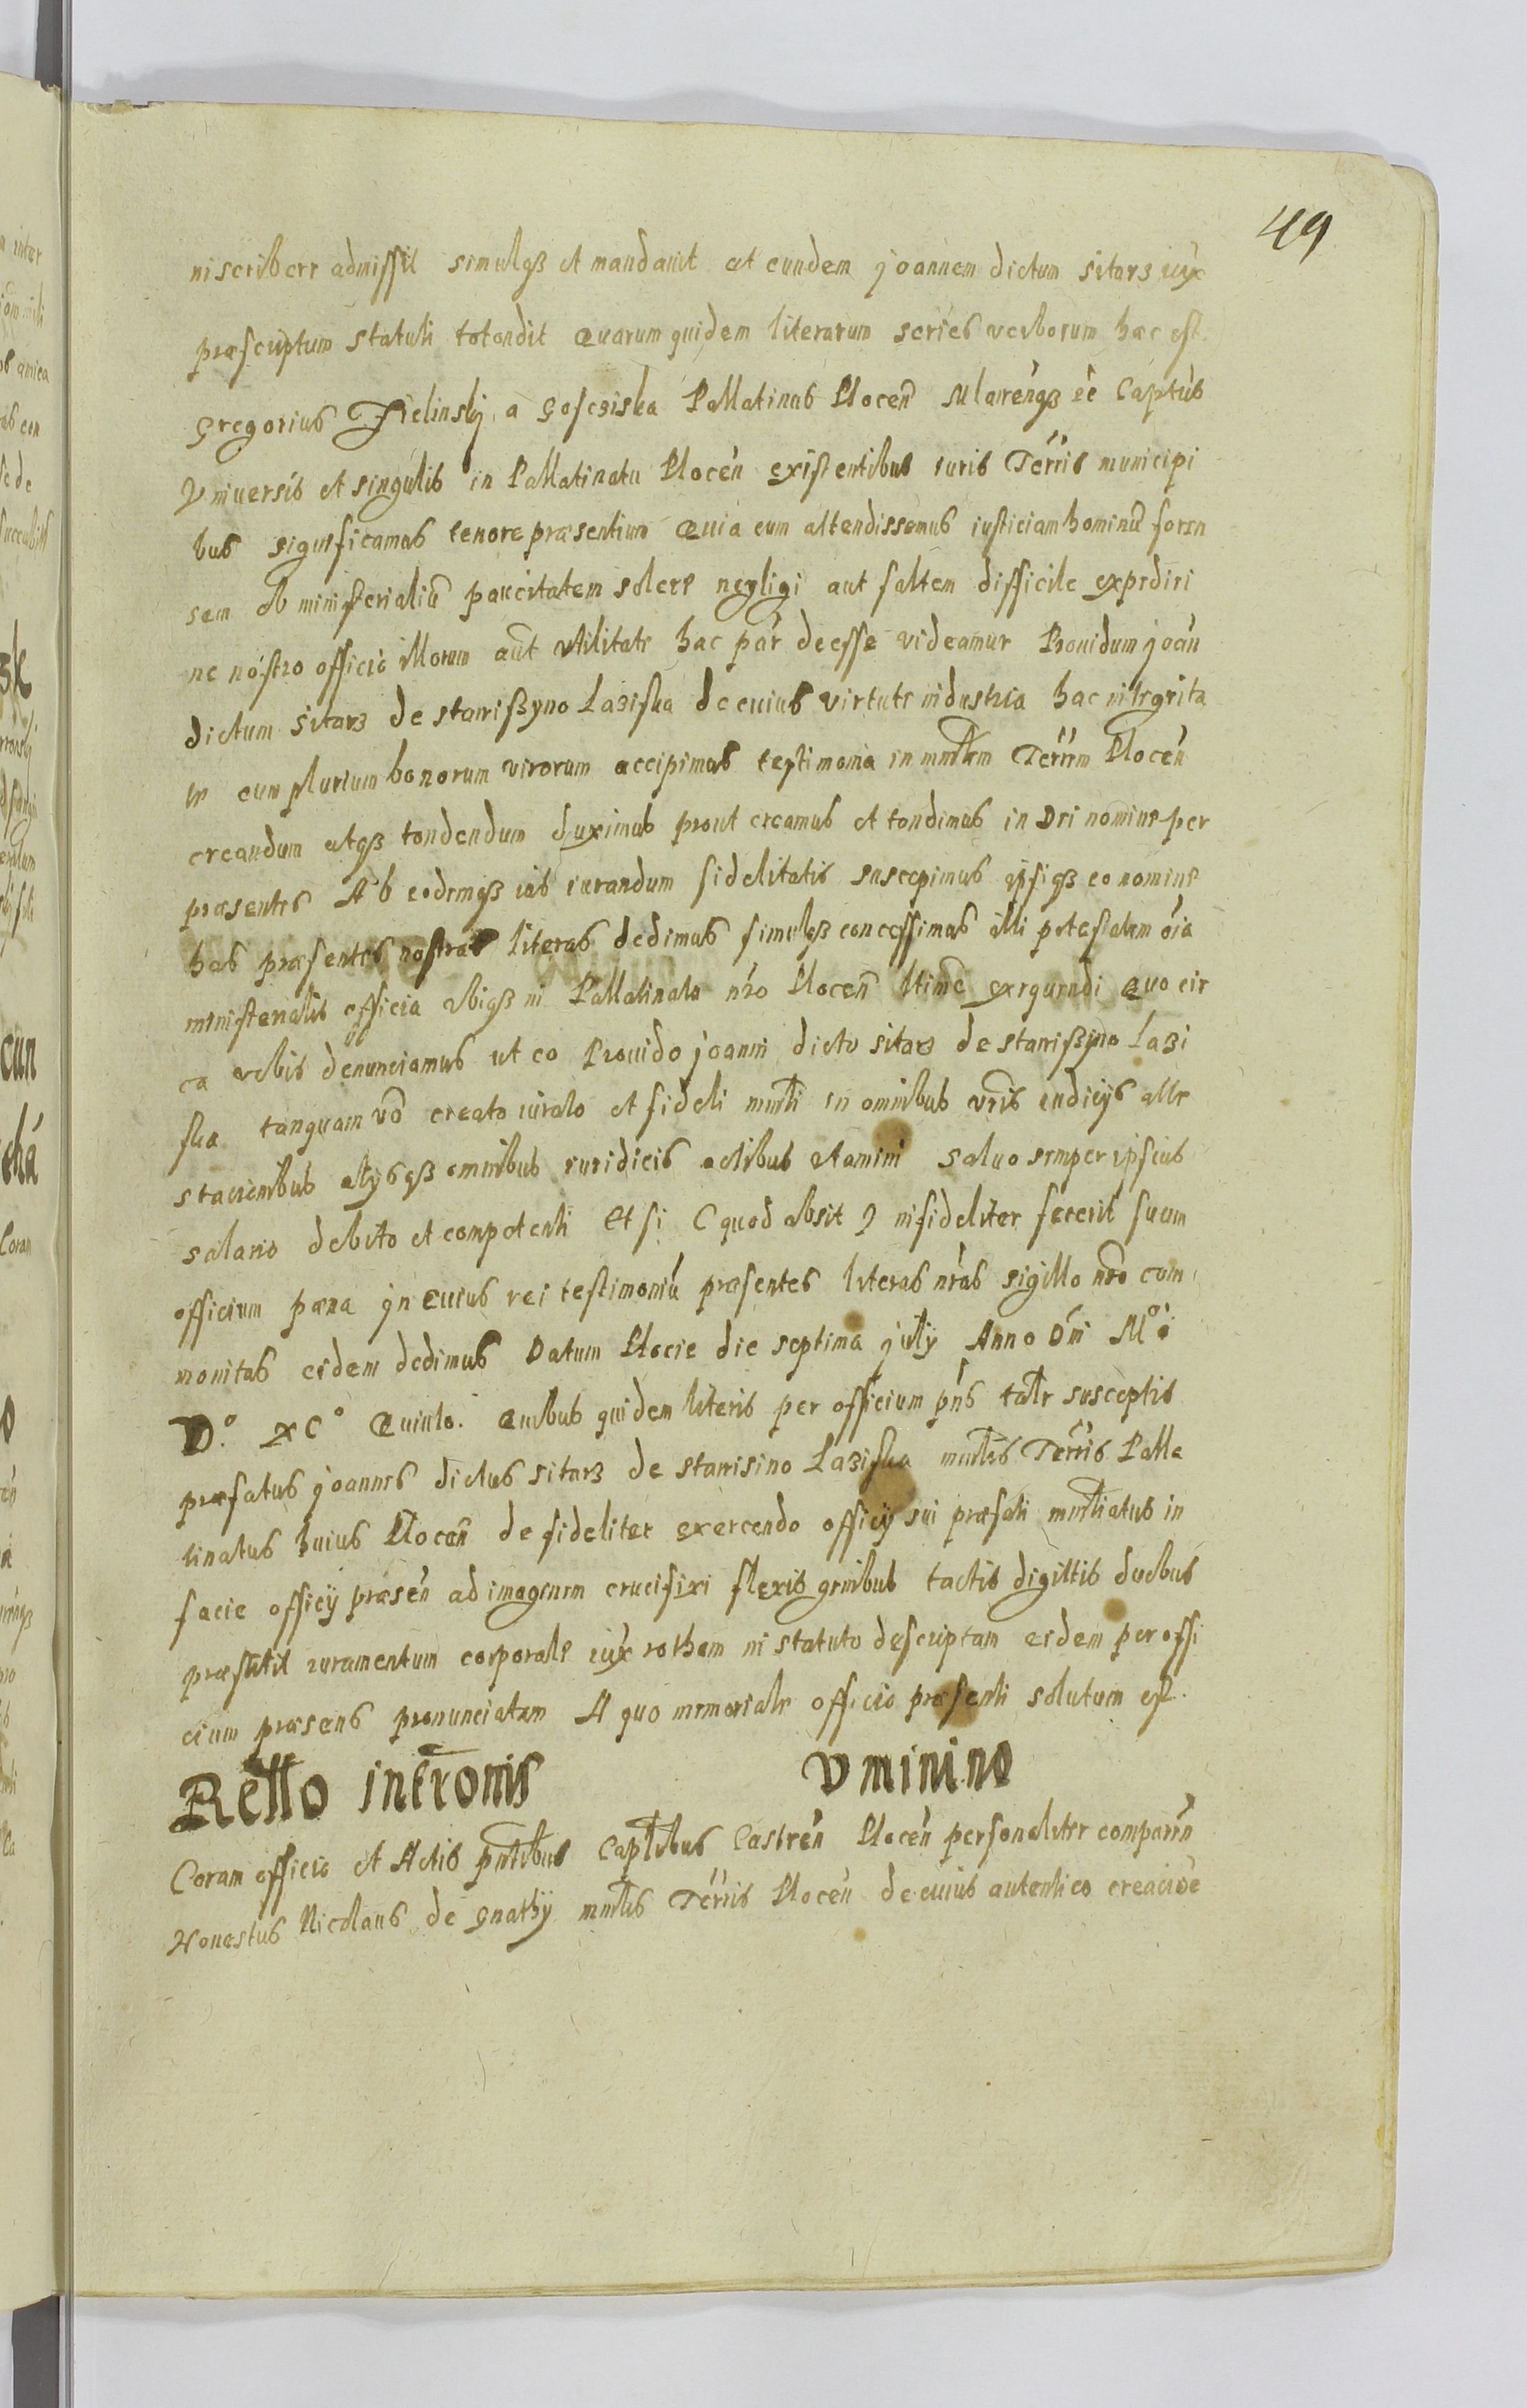 49
niscribere admissit simulqß et mandauit et eundem joannem dictum sitarz iux
præscriptum statuti totondit Quarum quidem literarum series verborum hæc est
Gregorius Zielinsky a Goscziska Pallatinus Plocen̄ Mlaveńqß ēē Captús
Vniuersis et singulis in Pallatinatu Plocén existentibus iuris Terris municipi
bus significamus tenore præsentium Quia cum attendissemus iusticiam hominū foren
sem ob ministerialiū paucitatem solere negligi aut saltem difficile expediri
ne nostro officio illorum aut vtilitate hac pár deesse videamur Prouidum joan
dictum sitarz de stanißyno Laziska de cuius virtute industria hac integrita
te cum plurium bonorum virorum accipimus testimonia in mnrlem Terrm Plocén
creandum atqß tondendum duximus prout creamus et tondimus in Dei nomine per
præsentes Ab eodemqß ius iurandum fidelitatis suscepimus ipsiqß eo nomine
has præsentes nostras literas dedimus simulqß concessimus illi potestatem oīa
ministerialis officia vbiqß in Pallatinato nro Plocen̄ ltime exequendi Quo cir
ca vobis denunciamus ut eo Prouido joanni dicto sitarz de stanißyno Lazi
ska tanquam vō creato iurato et fideli mnrli in omnibus vris iudicys atte
stacionibus alysqß omnibus iuridicis actibus vtamini saluo semper ipsius
salario debito et competenti Et si C quod absit Ɔ infideliter fecerit suum
officium pæna jn cuius rei testimoniū præsentes literas nras sigillo nro com
monitas eidem dedimus Datum Plocie die septima july Anno Dni M°
D.° XC° Quinto. Quibus quidem literis per officium pns talr susceptis
præfatus joannes dictus sitarz de stanisino Laziska mnrlis Terris Palla
tinatus huius Plocen̄ de fideliter exercendo officy sui præfati mnrliatus in
facie officy præsén ad imaginem crucifixi flexis genibus tactis digittis duobus
præstitit iuramentum corporale iux rotham in statuto descriptam eidem per offi
cium præsens pronunciatam A quo memoriale officio præsenti solutum est.
Retto intronis Vminino
Coram officio et Actis pntibus Captlibus Castrén Plocén personaliter comparén
Honestus Nicolaus de Gnathy mnrlis Terris Plocén de cuius autentico creacióe